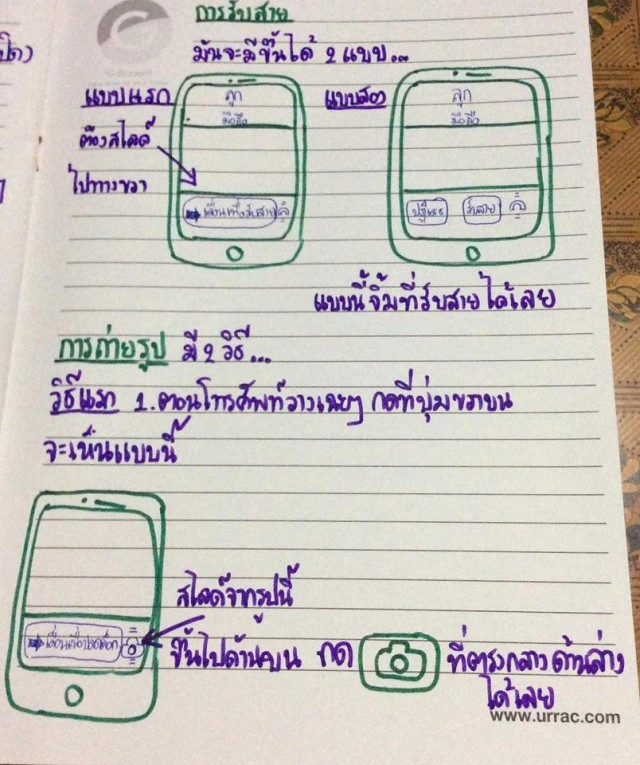 การรับสาย
มันจะมีขึ้นได้ 2 แบบ...
แบบแรก
ต้องสไลด์
ไปทางขวา
ลูก
มือถือ
เลื่อนเพื่อรับสาย
แบบสอง
ลูก
มือถือ
ปฏิเสธ
รับสาย
แบบนี้จิ้มที่รับสายได้เลย
การถ่ายรูป มี 2 วิธี...
วิธีแรก 1. ตอนโทรศัพท์วางเฉยๆ กดที่ปุ่มขวาบน
จะเห็นแบบนี้
เลื่อนเพื่อปลดล็อก
สไลด์จากรูปนี้
ขึ้นไปด้านบน กด ที่ตรงกลางด้านล่าง
ได้เลย
www.urrac.com